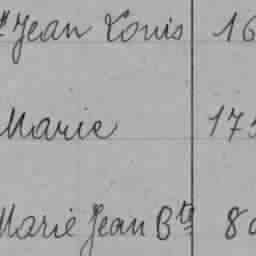 Jean Louis 16
Marie 175
Marie Jean Bte 80